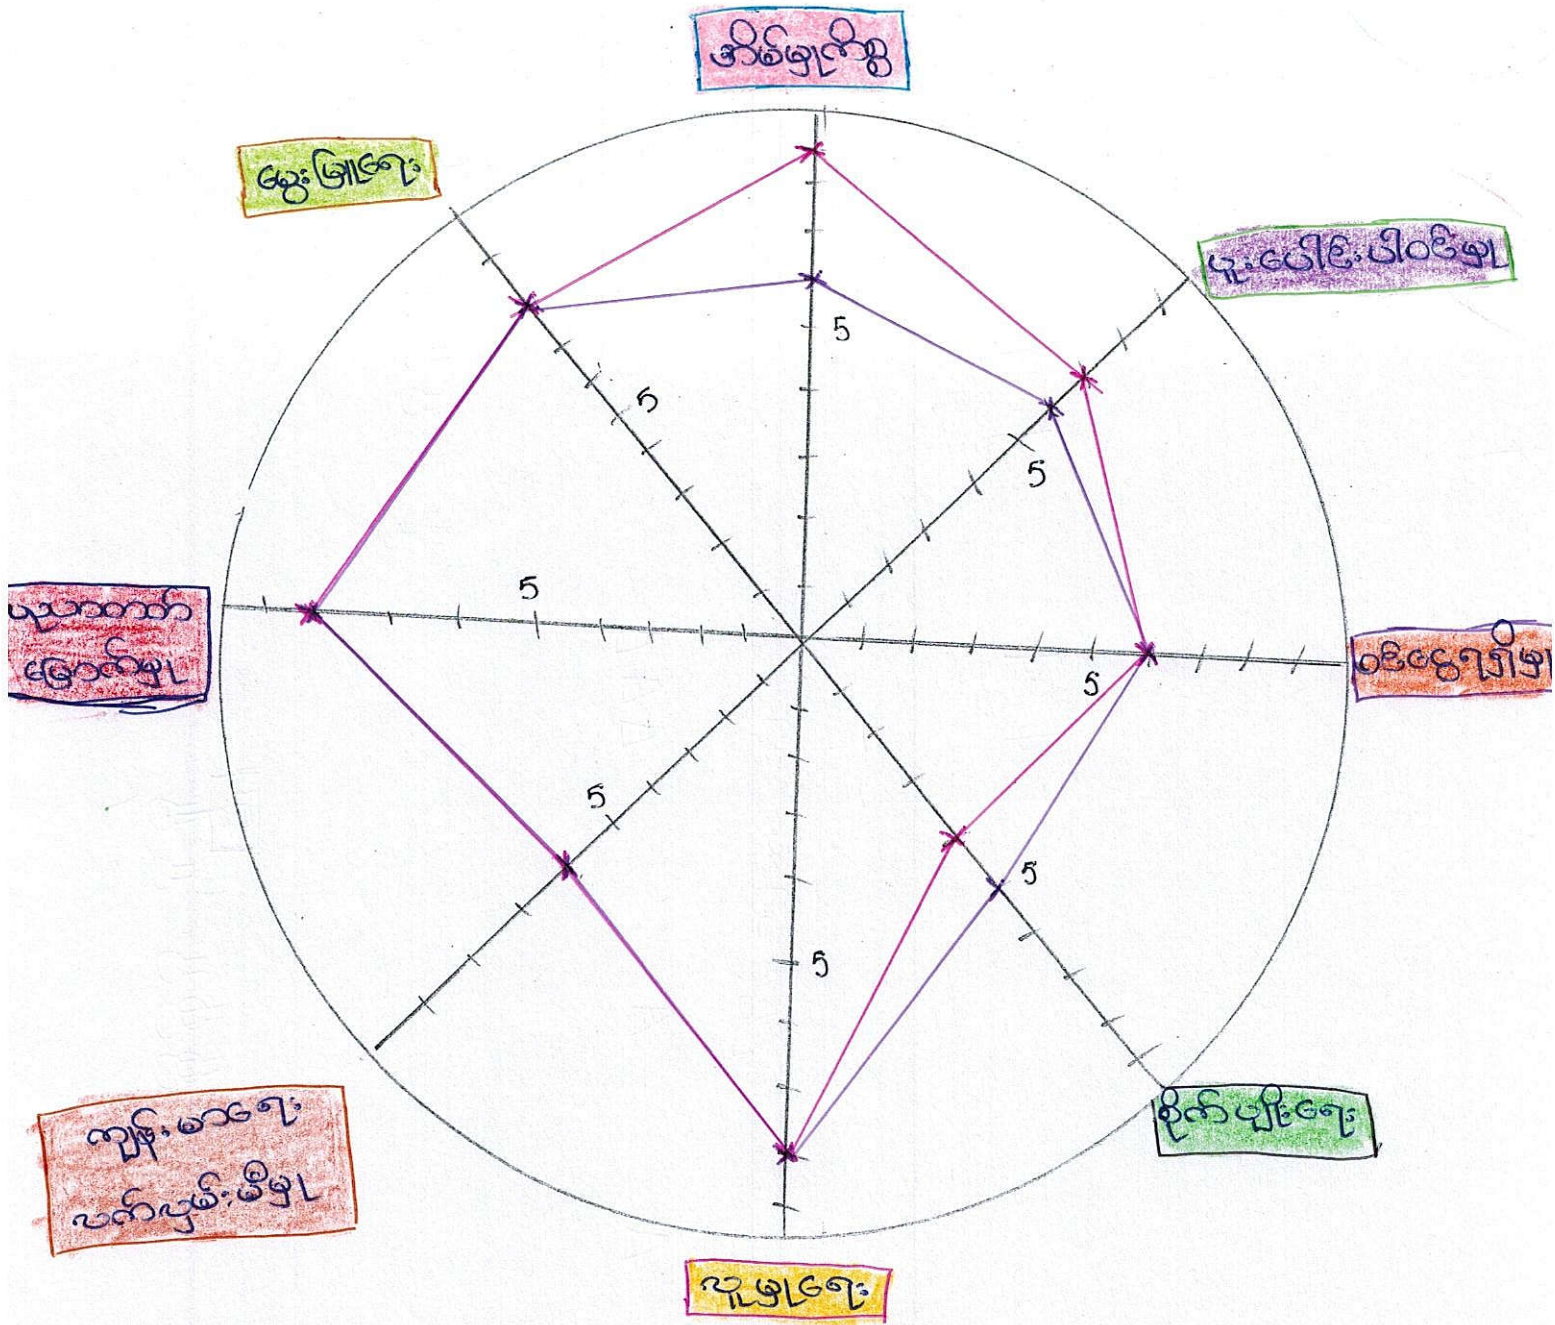 အိမ်မှုကိစ္စ
မွေးမြူရေး
ပူးပေါင်းပါဝင်မှု
5
5
5
5
ပညာတတ်
မြောက်မှု
ဝင်ငွေရရှိမှု
5
5
5
5
စိုက်ပျိုးရေး
ကျန်းမာရေး
လက်လှမ်းမီမှု
လူမှုရေး